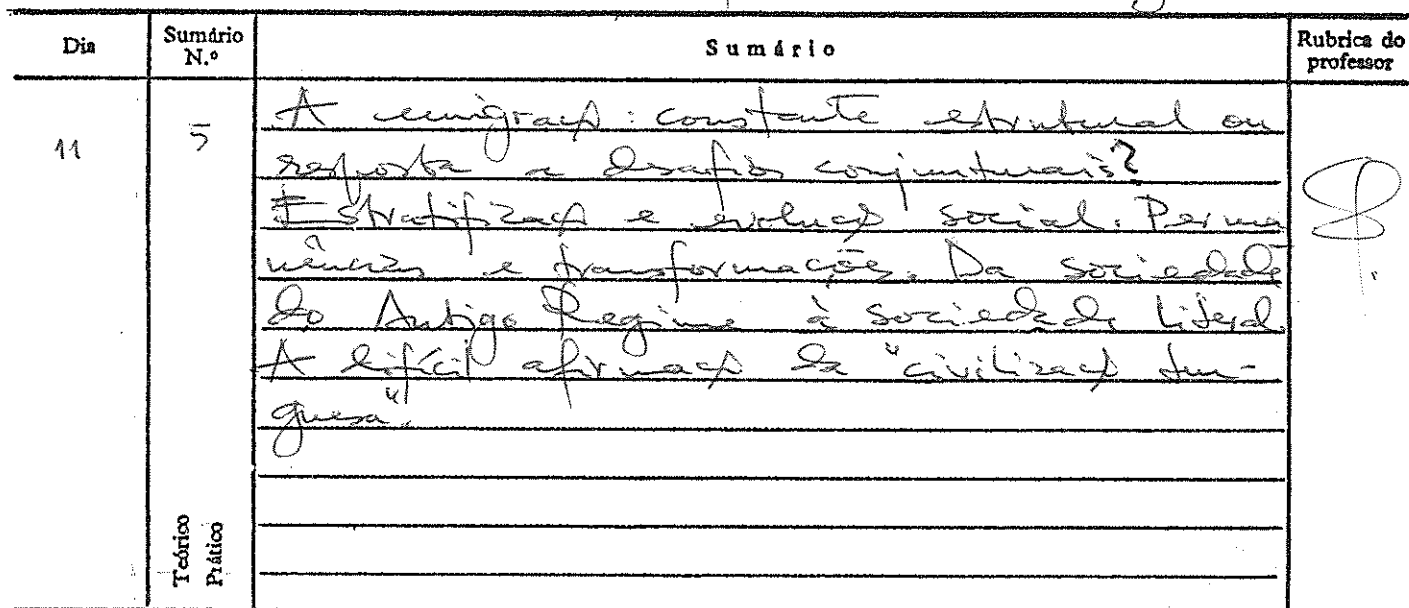 Dia Sumário N.º Sumário Rubrica do professor
11 5 A emigração: constante estrutural ou
resposta a desafios conjunturais?
Estratificação e evolução social. Perma
nências e transformações. Da sociedade
do Antigo Regime à sociedade liberal.
A difícil afirmação da "civilização bur-
guesa".
Teórico
Prático